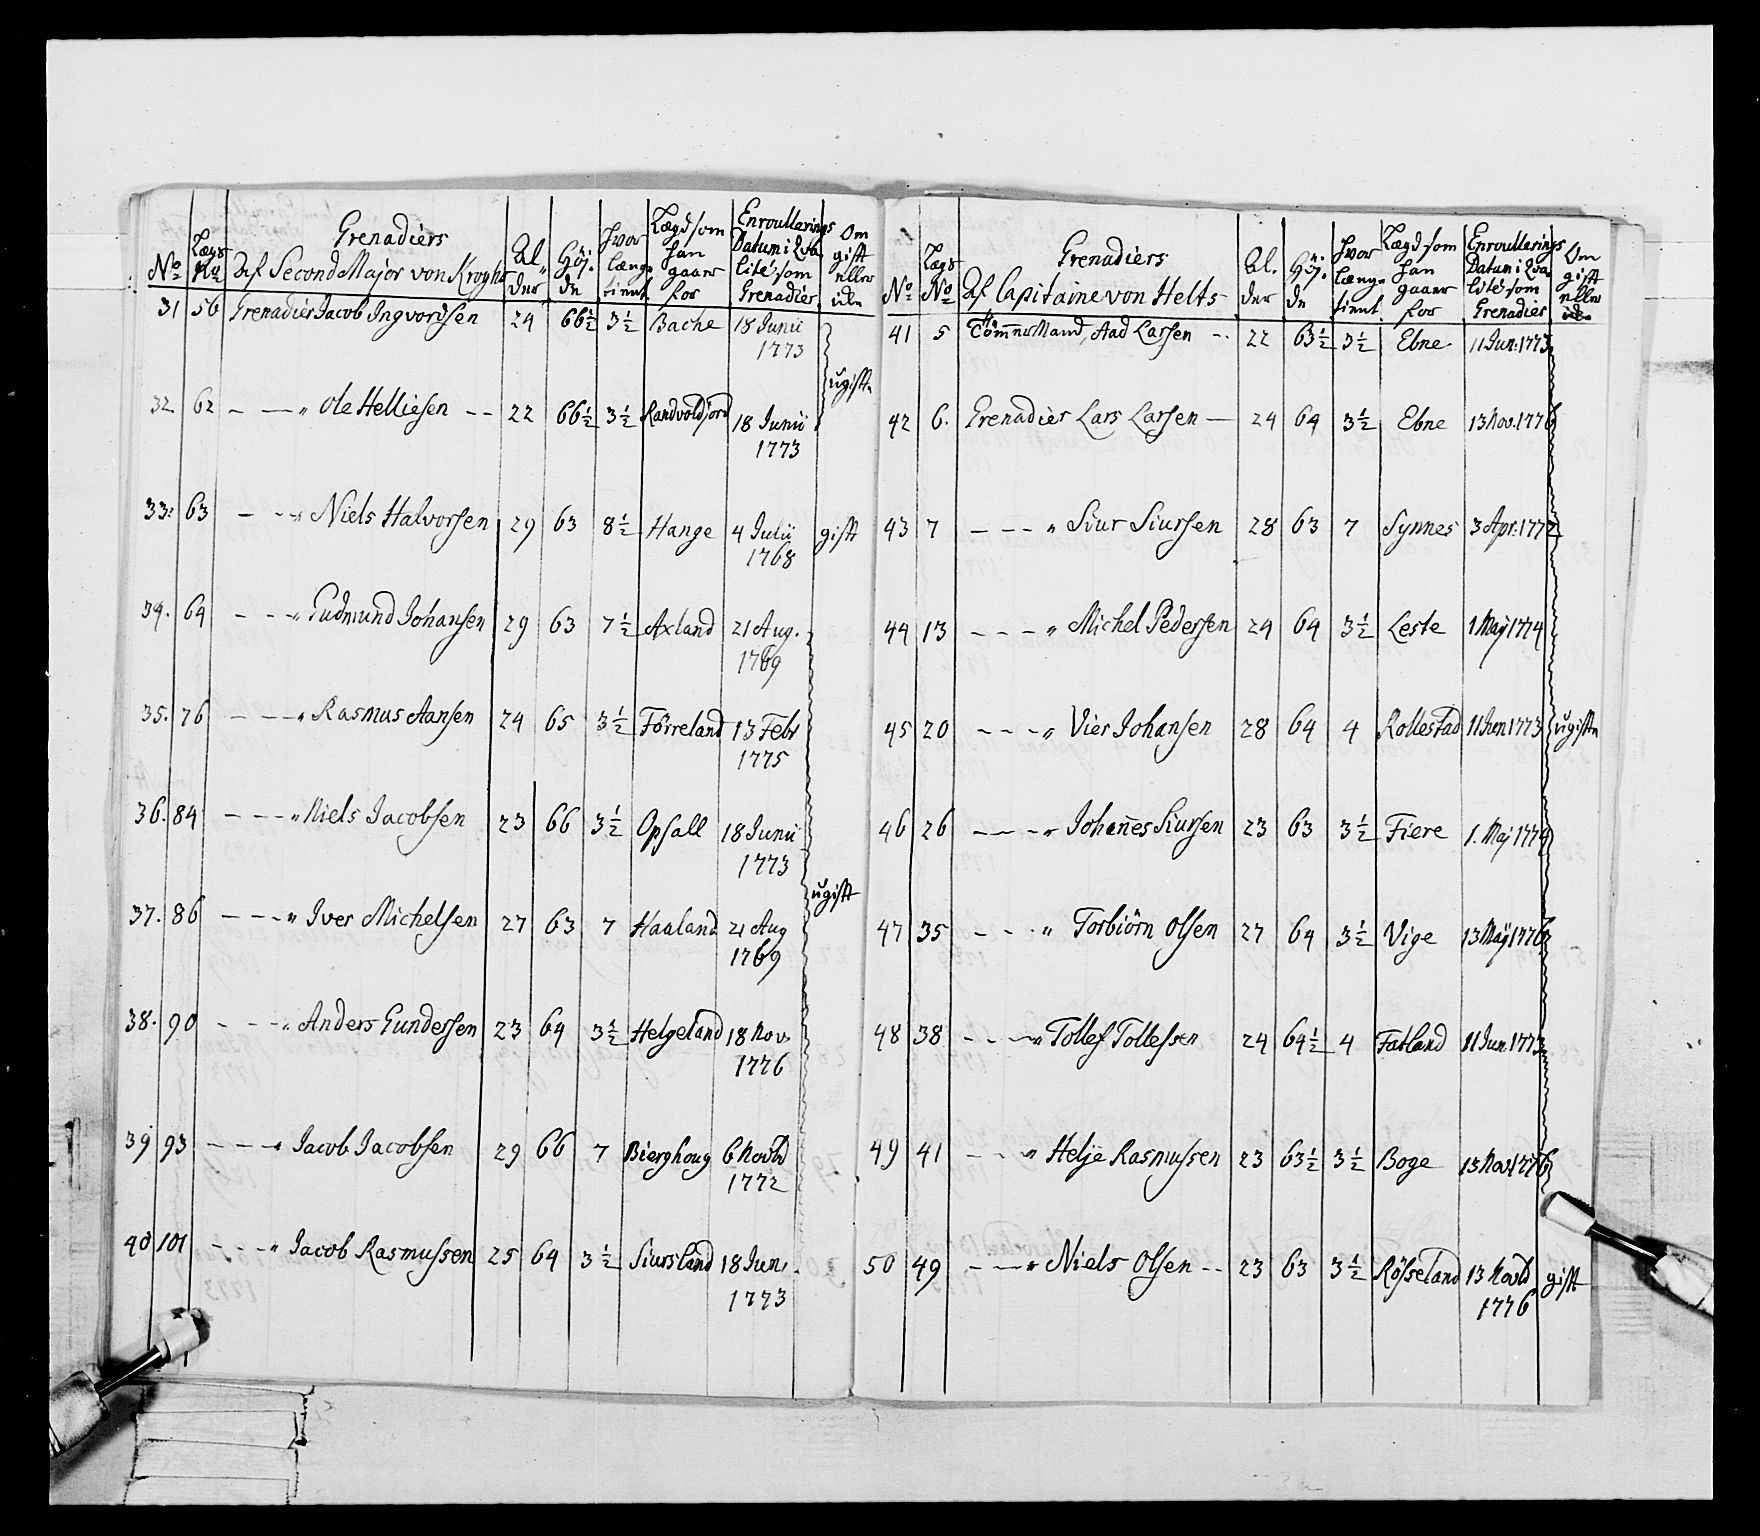 Grenadiers
No Lægs No Af Second Major von Kroghs Alder Höjde Hvor længe tient Lægd som han gaaer for Enroullerings Datum i Qvalité som Grenadier Om gift eller ude
31 56 Grenadier Jacob Ingvordsen 24 66½ 3½ Bache 18 Junii 1773
ugifte
32 62 — — " Ole Helliesen -- 22 66½ 3½ Randvoldjord 18 Junii 1773
33. 63 — - " Niels Halvorsen 29 63 8½ Hange 4 Julii 1768 gift
34. 64 — - - " Gudmund Johansen 29 63 7½ Axland 21 Aug. 1769
35. 76 — — " Rasmus Aansen 24 65 3½ Förreland 13 Febr 1775
36. 84 — - - " Niels Jacobsen 23 66 3½ Opsall 18 Junii 1773
ugift
37. 86 — - - " Iver Michelsen 27 63 7 Haaland 21 Aug 1769
38. 90 - - - " Anders Gundersen 23 64 3½ Helgeland 18 Nov. 1776
39 93 — - - " Jacob Jacobsen 29 66 7 Bierghoug 6 Novbr 1772
40 101 - - - " Jacob Rasmussen 25 64 3½ Siursland 18 Jun. 1773
Grenadiers
No Lægs No Af Capitaine von Helts Alder Höjde Hvor længe tient Lægd som han gaaer for Enroullerings Datum i Qvalité som Grenadier Om gift eller ude
41 5 Tömmer Mand, Aad Larsen -- 22 63½ 3½ Ebne 11 Jun: 1773
42 6. Grenadier Lars Larsen — 24 64 3½ Ebne 13 Nov. 1776
43 7 — - - " Siur Siursen 28 63 7 Synnes 3 Apr: 1772
44 13 - - - " Michel Pedersen 24 64 3½ Leste 1 Maj 1774
45 20 - - - " Vier Johansen 28 64 4 Rollestad 11 Jun 1773 ugifte
46 26 — - - " Johannes Siursen 23 63 3½ Fiere 1. Maj 1774
47 35 - - - " Torbiörn Olsen 27 64 3½ Vige 13 Maij 1776
48 38 - - - " Tollef Tollefsen 24 64½ 4 Fatland 11 Jun. 1773
49 41 - - " Helje Rasmussen 23 63½ 3½ Boge 13 Nov 1776
50 49 - — " Niels Olsen -- 23 63 3½ Rösseland 13 Novbr 1776 gift